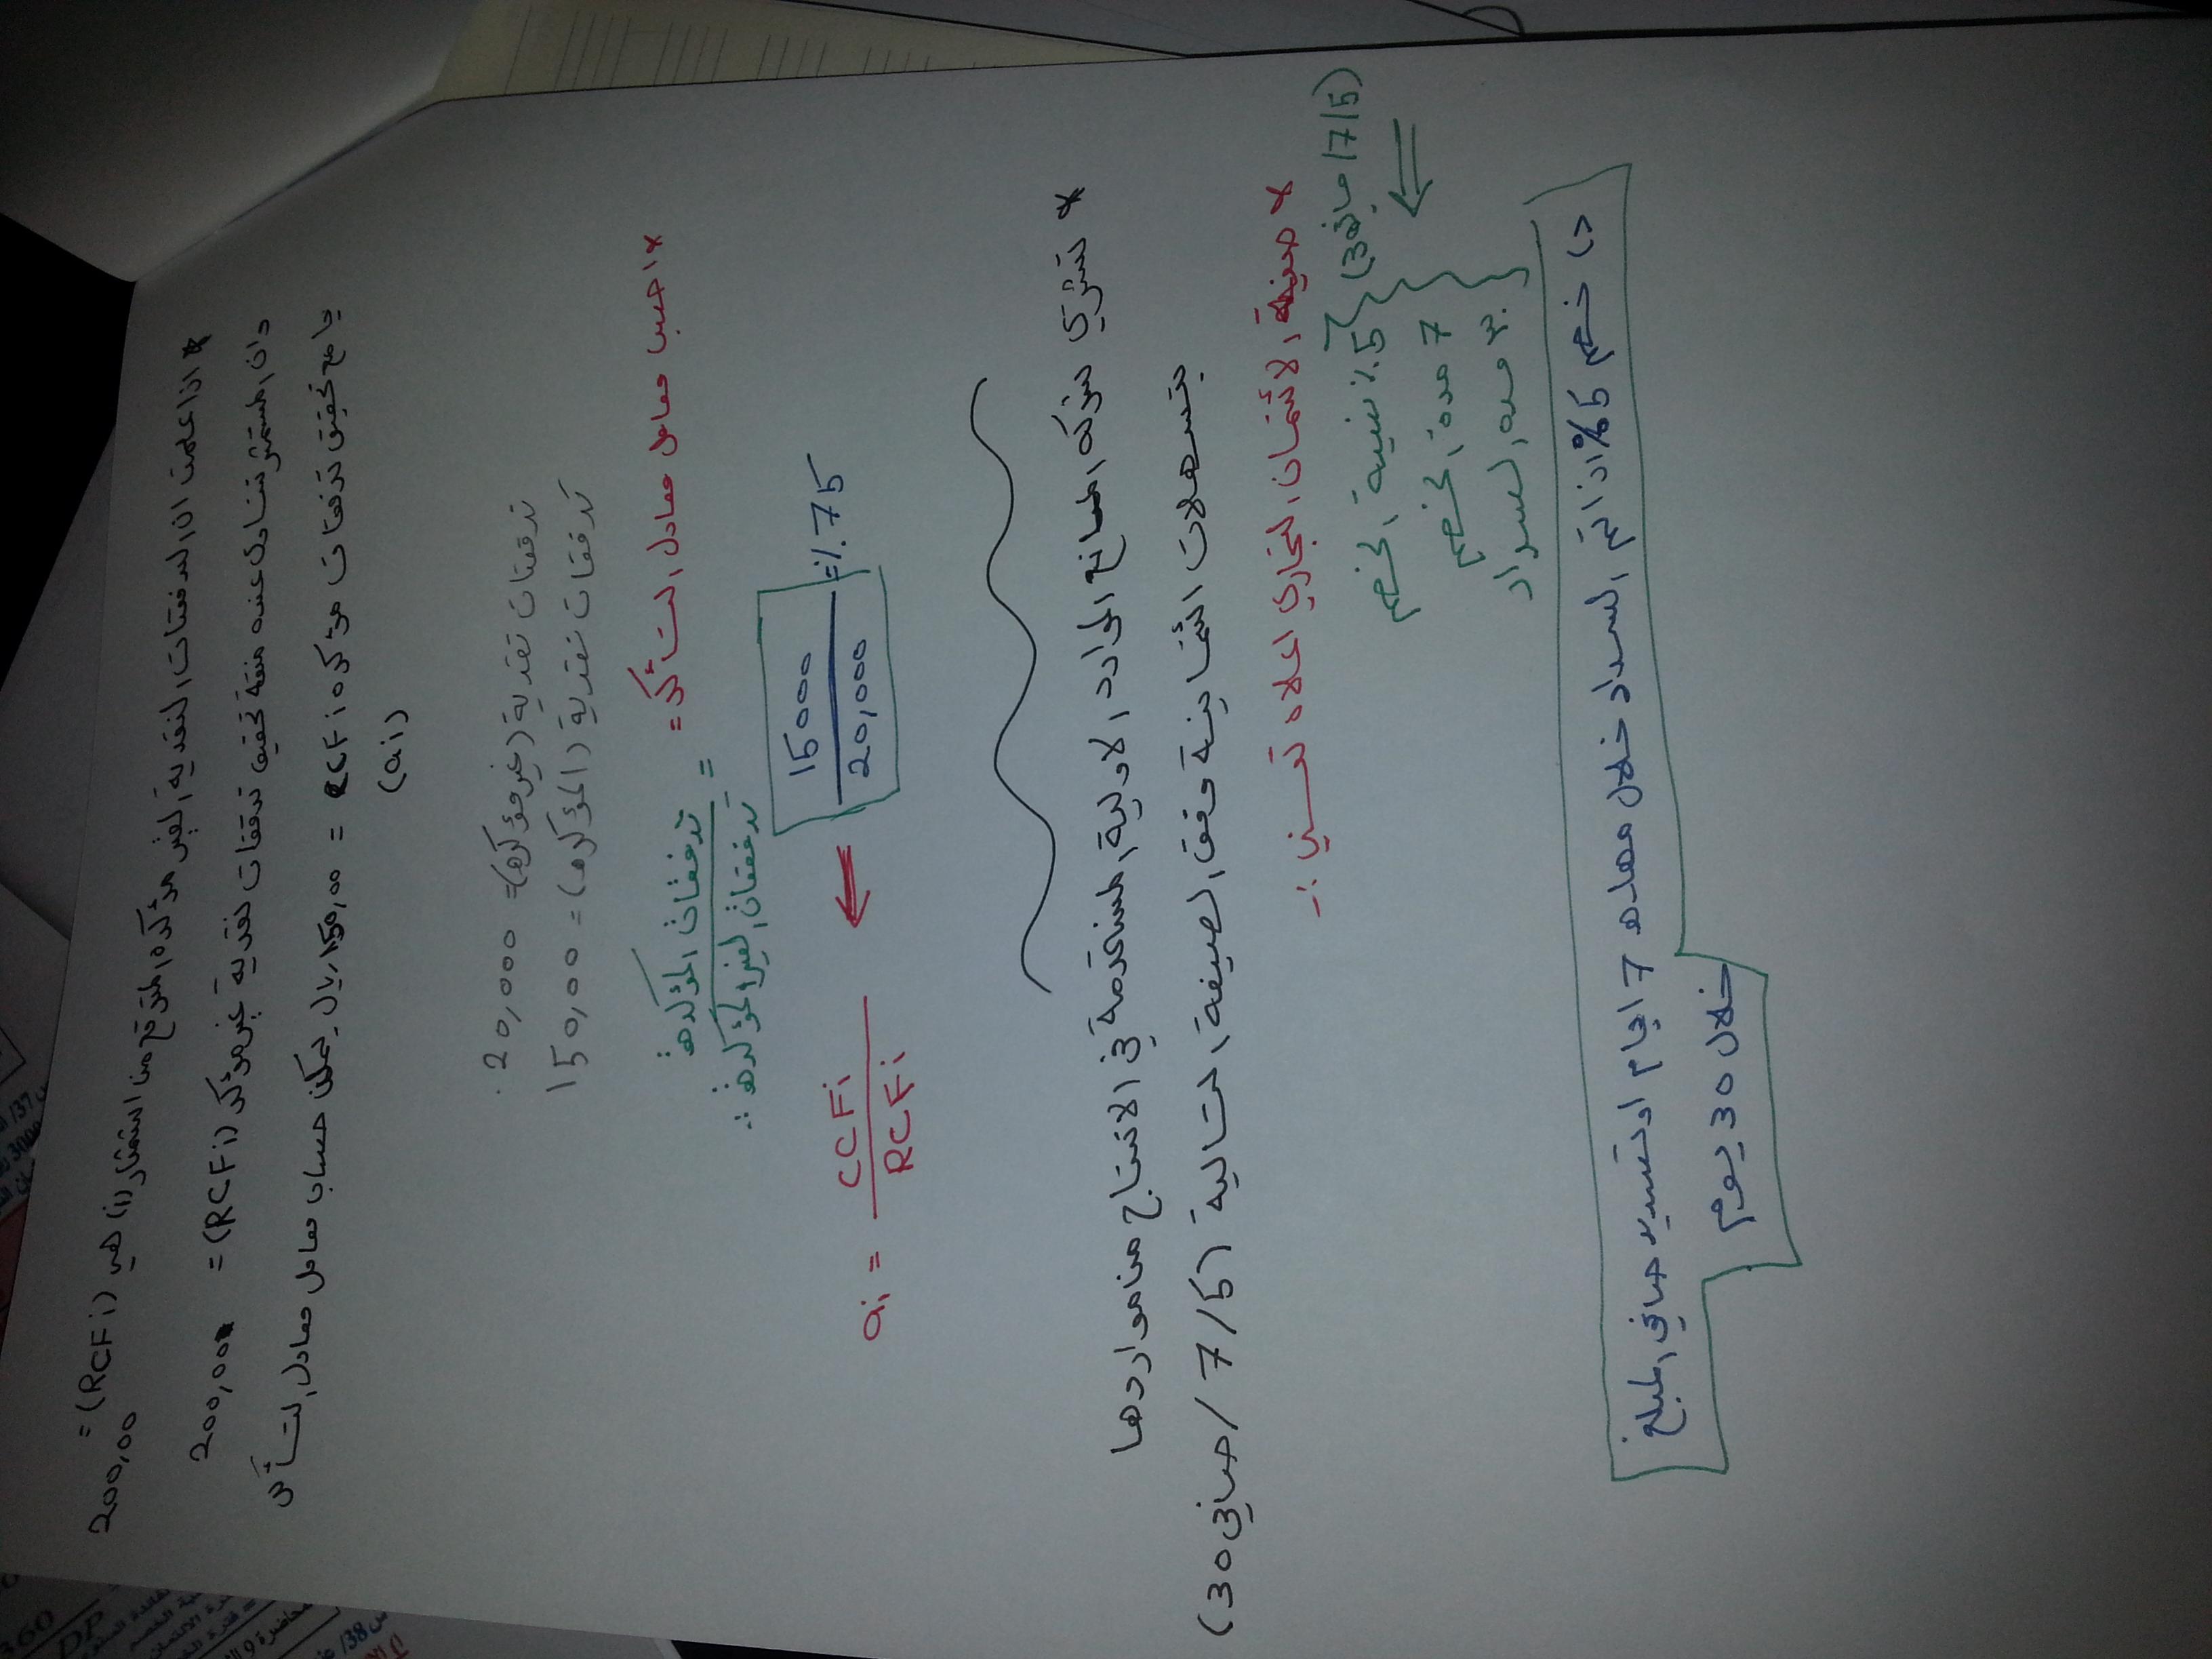 * اذا علمت ان الدفقات النقدية الغير مؤكده المتوقع من استثمار (i) هي (RCFi) =
200,00
وان المستثمر تتساوى عنده منفعة تحقيق تدفقات نقدية غير مؤكد (RCFi) = 200,00
يا مع تحقيق تدفقات مؤكده CCFi = 150,00 ريال يمكن حساب معامل معادل التأكد
(ai)
تدفقات نقدية (غير مؤكده) = 20,000
تدفقات نقدية (المؤكده) = 150,00
* احسب معامل معادل التأكد =
تدفقات المؤكدة
تدفقات الغير المؤكدة
=
ai = CCFi / RCFi ← 15000 / 20,000 = %.75
* تشتري شركه المصانع المواد الاولية المستخدمة في الانتاج من مواردها
بتسهلات ائتمانية وفق الصيغة التالية (5/ 7 / صافى 30)
* صيغة الائتمان التجاري اعلاه تعني :-
(5\7\ صافي 30)
5٪ نسبة الخصم
7 مدة الخصم
30 مده السداد
د) خصم 5% اذا تم السداد خلال مهله 7 ايام او تسديد صافي المبلغ
خلال 30 يوم
360
DP